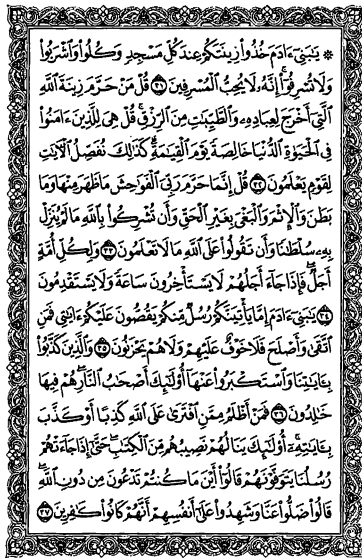 ۞ يَـٰبَنِىٓ ءَادَمَ خُذُوا۟ زِينَتَكُمْ عِندَ كُلِّ مَسْجِدٍ وَكُلُوا۟ وَٱشْرَبُوا۟
وَلَا تُسْرِفُوٓا۟ إِنَّهُۥ لَا يُحِبُّ ٱلْمُسْرِفِينَ ﴿٣١﴾ قُلْ مَنْ حَرَّمَ زِينَةَ ٱللَّهِ
ٱلَّتِىٓ أَخْرَجَ لِعِبَادِهِۦ وَٱلطَّيِّبَـٰتِ مِنَ ٱلرِّزْقِ ۚ قُلْ هِىَ لِلَّذِينَ ءَامَنُوا۟
فِى ٱلْحَيَوٰةِ ٱلدُّنْيَا خَالِصَةً يَوْمَ ٱلْقِيَـٰمَةِ ۗ كَذَٰلِكَ نُفَصِّلُ ٱلْـَٔايَـٰتِ
لِقَوْمٍ يَعْلَمُونَ ﴿٣٢﴾ قُلْ إِنَّمَا حَرَّمَ رَبِّىَ ٱلْفَوَٰحِشَ مَا ظَهَرَ مِنْهَا وَمَا
بَطَنَ وَٱلْإِثْمَ وَٱلْبَغْىَ بِغَيْرِ ٱلْحَقِّ وَأَن تُشْرِكُوا۟ بِٱللَّهِ مَا لَمْ يُنَزِّلْ
بِهِۦ سُلْطَـٰنًا وَأَن تَقُولُوا۟ عَلَى ٱللَّهِ مَا لَا تَعْلَمُونَ ﴿٣٣﴾ وَلِكُلِّ أُمَّةٍ
أَجَلٌ ۖ فَإِذَا جَآءَ أَجَلُهُمْ لَا يَسْتَأْخِرُونَ سَاعَةً ۖ وَلَا يَسْتَقْدِمُونَ
﴿٣٤﴾ يَـٰبَنِىٓ ءَادَمَ إِمَّا يَأْتِيَنَّكُمْ رُسُلٌ مِّنكُمْ يَقُصُّونَ عَلَيْكُمْ ءَايَـٰتِى ۙ فَمَنِ
ٱتَّقَىٰ وَأَصْلَحَ فَلَا خَوْفٌ عَلَيْهِمْ وَلَا هُمْ يَحْزَنُونَ ﴿٣٥﴾ وَٱلَّذِينَ كَذَّبُوا۟
بِـَٔايَـٰتِنَا وَٱسْتَكْبَرُوا۟ عَنْهَآ أُو۟لَـٰٓئِكَ أَصْحَـٰبُ ٱلنَّارِ ۖ هُمْ فِيهَا
خَـٰلِدُونَ ﴿٣٦﴾ فَمَنْ أَظْلَمُ مِمَّنِ ٱفْتَرَىٰ عَلَى ٱللَّهِ كَذِبًا أَوْ كَذَّبَ
بِـَٔايَـٰتِهِۦٓ ۚ أُو۟لَـٰٓئِكَ يَنَالُهُمْ نَصِيبُهُم مِّنَ ٱلْكِتَـٰبِ ۖ حَتَّىٰٓ إِذَا جَآءَتْهُمْ
رُسُلُنَا يَتَوَفَّوْنَهُمْ قَالُوٓا۟ أَيْنَ مَا كُنتُمْ تَدْعُونَ مِن دُونِ ٱللَّهِ ۖ
قَالُوا۟ ضَلُّوا۟ عَنَّا وَشَهِدُوا۟ عَلَىٰٓ أَنفُسِهِمْ أَنَّهُمْ كَانُوا۟ كَـٰفِرِينَ ﴿٣٧﴾